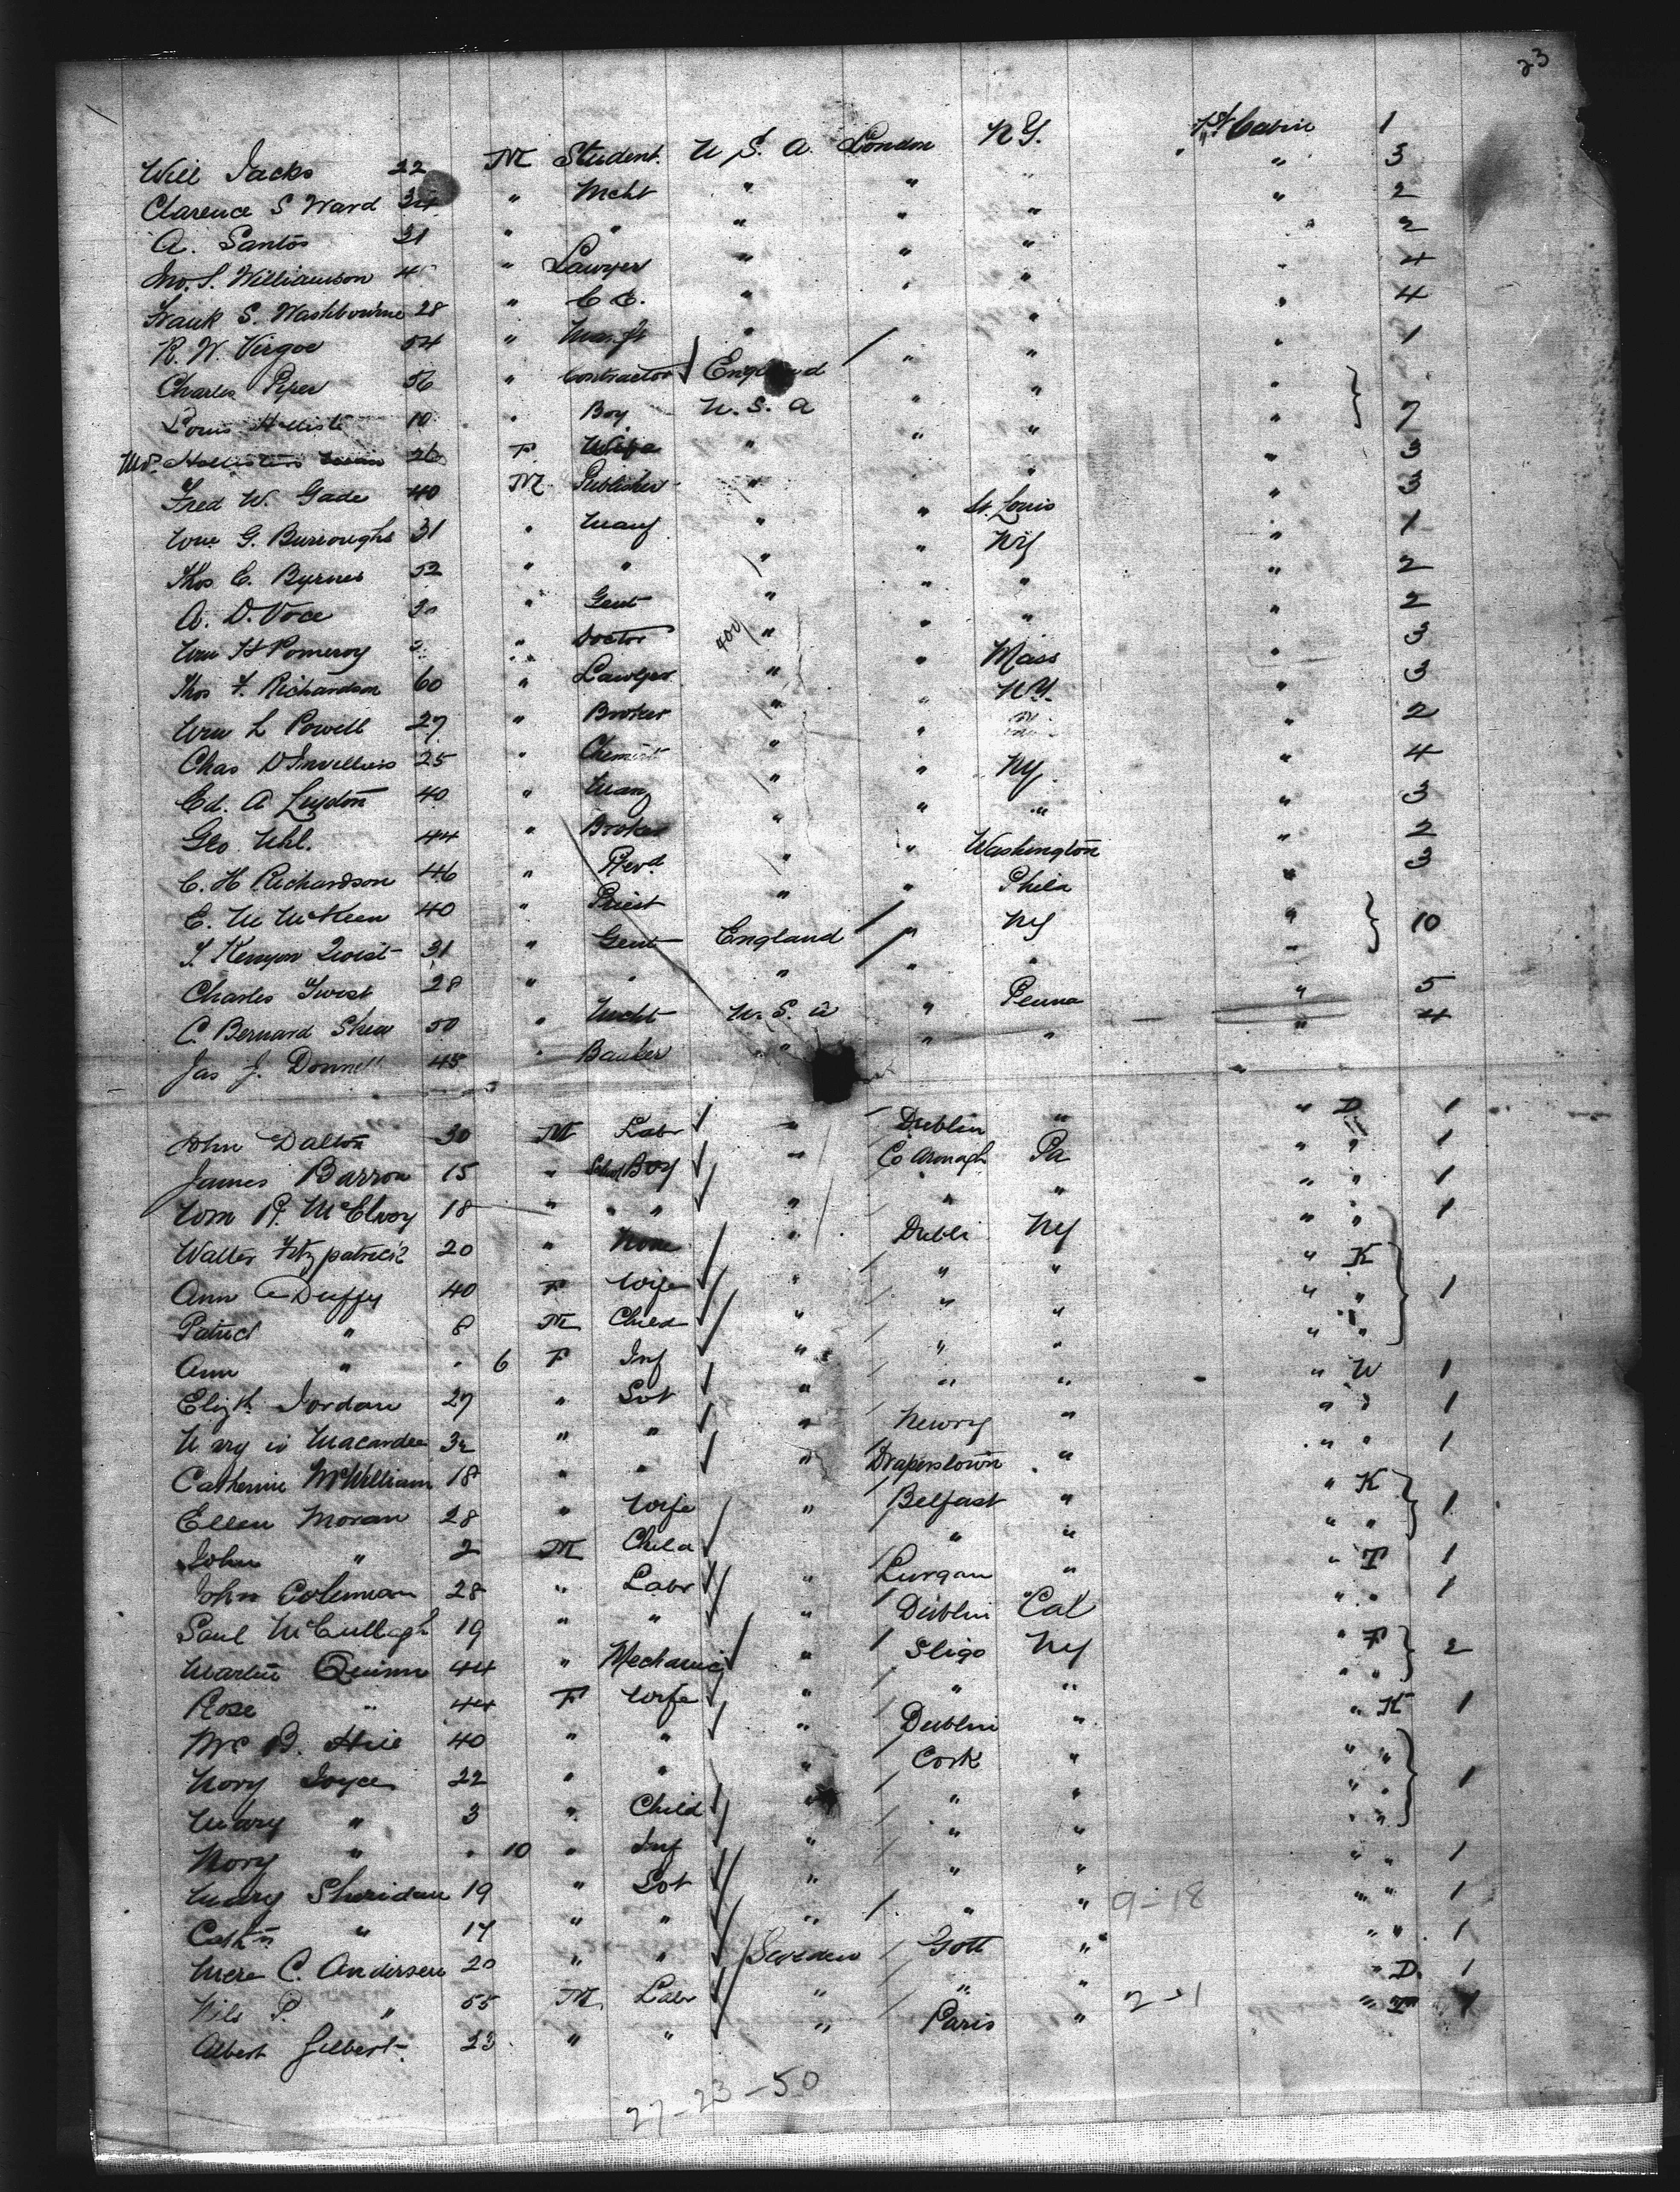 23
Will Jacks 22 M Student U.S.A. London N.Y. 1st Cabin 1
Clarence S Ward 34 " Mcht " " " " 3
A. Santos 21 " " " " " " 2
Jno. S. Williamson " Lawyer " " " " 2
Frank S. Washbourne 28 " C.E. " " " " 4
R. W. Virgoe 54 " Manft " " " 4
Charles Piper 56 " Contractor England " " " 1
Louis 10 " Boy U.S.A " " "
Mrs. 26 F Wife " " " " 7
Fred W. Gade 40 M Publisher " " " 3
Wm G. Burroughs 31 " Manf " " St. Louis " 3
Thos E. Byrnes 52 " " " " NY " 1
A. D. Voce " Gent " " " " 2
Wm H Pomeroy " Doctor 400 " " " " 2
Thos F. Richardson 60 " Lawyer " " Mass " 3
Wm L Powell 27 " Broker " " N.Y. " 3
Chas D'Invilliers 25 " Chemist " " " 2
Ed. A Leydon 40 " Manf " " NY " 4
Geo. Uhl. 44 " Broker " " " " 3
C. H Richardson 46 " Revd " " Washington " 2
E. M McKeen 40 " Priest " " Phila " 3
T. Kenyon Twist 31 " Gent England " NY " 10
Charles Twist 28 " " " " " "
C. Bernard Shea 50 " Mcht U.S.A " Penna " 5
Jas J. Donnell 45 " Banker " " " " 4
John Dalton 30 M Labr " Dublin " " D 1
James Barron 15 " School Boy " Co Armagh Pa " " 1
Wm R. McElroy 18 " " " " " " " " 1
Walter Fitzpatrick 20 " None " Dubli NY " " 1
Ann Duffy 40 F Wife " " " " K
Patrick " 8 M Child " " " " " 1
Ann " 6 F Inf " " " " "
Elizth Jordan 27 " Svt " " " " W 1
Mary Macardle 32 " " " Newry " " " 1
Catherine McWilliam 18 " " " Draperstown " " " 1
Ellen Moran 28 " Wife " Belfast " " K 1
John " 2 M Child " " " "
John Coleman 28 " Labr " Lurgan " " T 1
Saul McCullagh 19 " " " Dublin Cal " " 1
Martin Quinn 44 " Mechanic " Sligo NY " F 2
Rose " 44 F Wife " " " " "
Mrs B. Hill 40 " " " Dublin " " K 1
Nory Joyce 22 " " " Cork " " "
Mary " 3 " Child " " " " " 1
Nory " 10 " Inf " " " " "
Mary Sheridan 19 " Svt " " " " " 1
Cathn " 17 " " " " " 9-18 " " 1
C. Andersen 20 " " Sweden Gott " " " 1
Nils P. " 55 M Labr " " " " D. 1
Albert Gilbert 23 " " " Paris " " 1
27-23-50